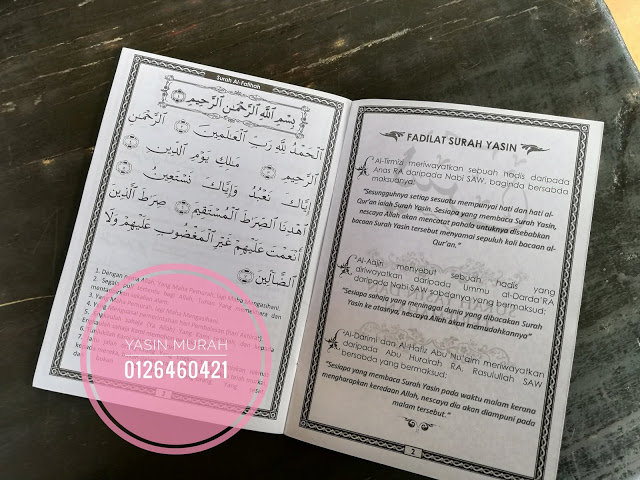 Surah Al-Fatihah
بِسْمِ ٱللَّهِ ٱلرَّحْمَٰنِ ٱلرَّحِيمِ
ٱلْحَمْدُ لِلَّهِ رَبِّ ٱلْعَٰلَمِينَ ٱلرَّحْمَٰنِ
ٱلرَّحِيمِ مَٰلِكِ يَوْمِ ٱلدِّينِ
إِيَّاكَ نَعْبُدُ وَإِيَّاكَ نَسْتَعِينُ
ٱهْدِنَا ٱلصِّرَٰطَ ٱلْمُسْتَقِيمَ صِرَٰطَ ٱلَّذِينَ
أَنْعَمْتَ عَلَيْهِمْ غَيْرِ ٱلْمَغْضُوبِ عَلَيْهِمْ وَلَا
ٱلضَّآلِّينَ
1. Dengan nama Allah, Yang Maha Pemurah, lagi Maha Mengasihani.
2. Segala
YASIN MURAH
0126460421
FADILAT SURAH YASIN
Al-Tirmizi meriwayatkan sebuah hadis daripada
Anas RA daripada Nabi SAW, baginda bersabda
maksudnya:
"Sesungguhnya setiap sesuatu mempunyai hati dan hati al-
Qur'an ialah Surah Yasin. Sesiapa yang membaca Surah Yasin,
nescaya Allah akan mencatat pahala untuknya disebabkan
bacaan Surah Yasin tersebut menyamai sepuluh kali bacaan al-
Qur'an."
Al-Aajiri menyebut sebuah hadis yang
diriwayatkan daripada Ummu al-Darda'RA
daripada Nabi SAW sabdanya yang bermaksud:
"Sesiapa sahaja yang meninggal dunia yang dibacakan Surah
Yasin ke atasnya, nescaya Allah akan memudahkannya"
Al-Darimi dan Al-Hafiz Abu Nu'aim meriwayatkan
daripada Abu Hurairah RA, Rasulullah SAW
bersabda yang bermaksud:
"Sesiapa yang membaca Surah Yasin pada waktu malam kerana
mengharapkan keredaan Allah, nescaya dia akan diampuni pada
malam tersebut."
2